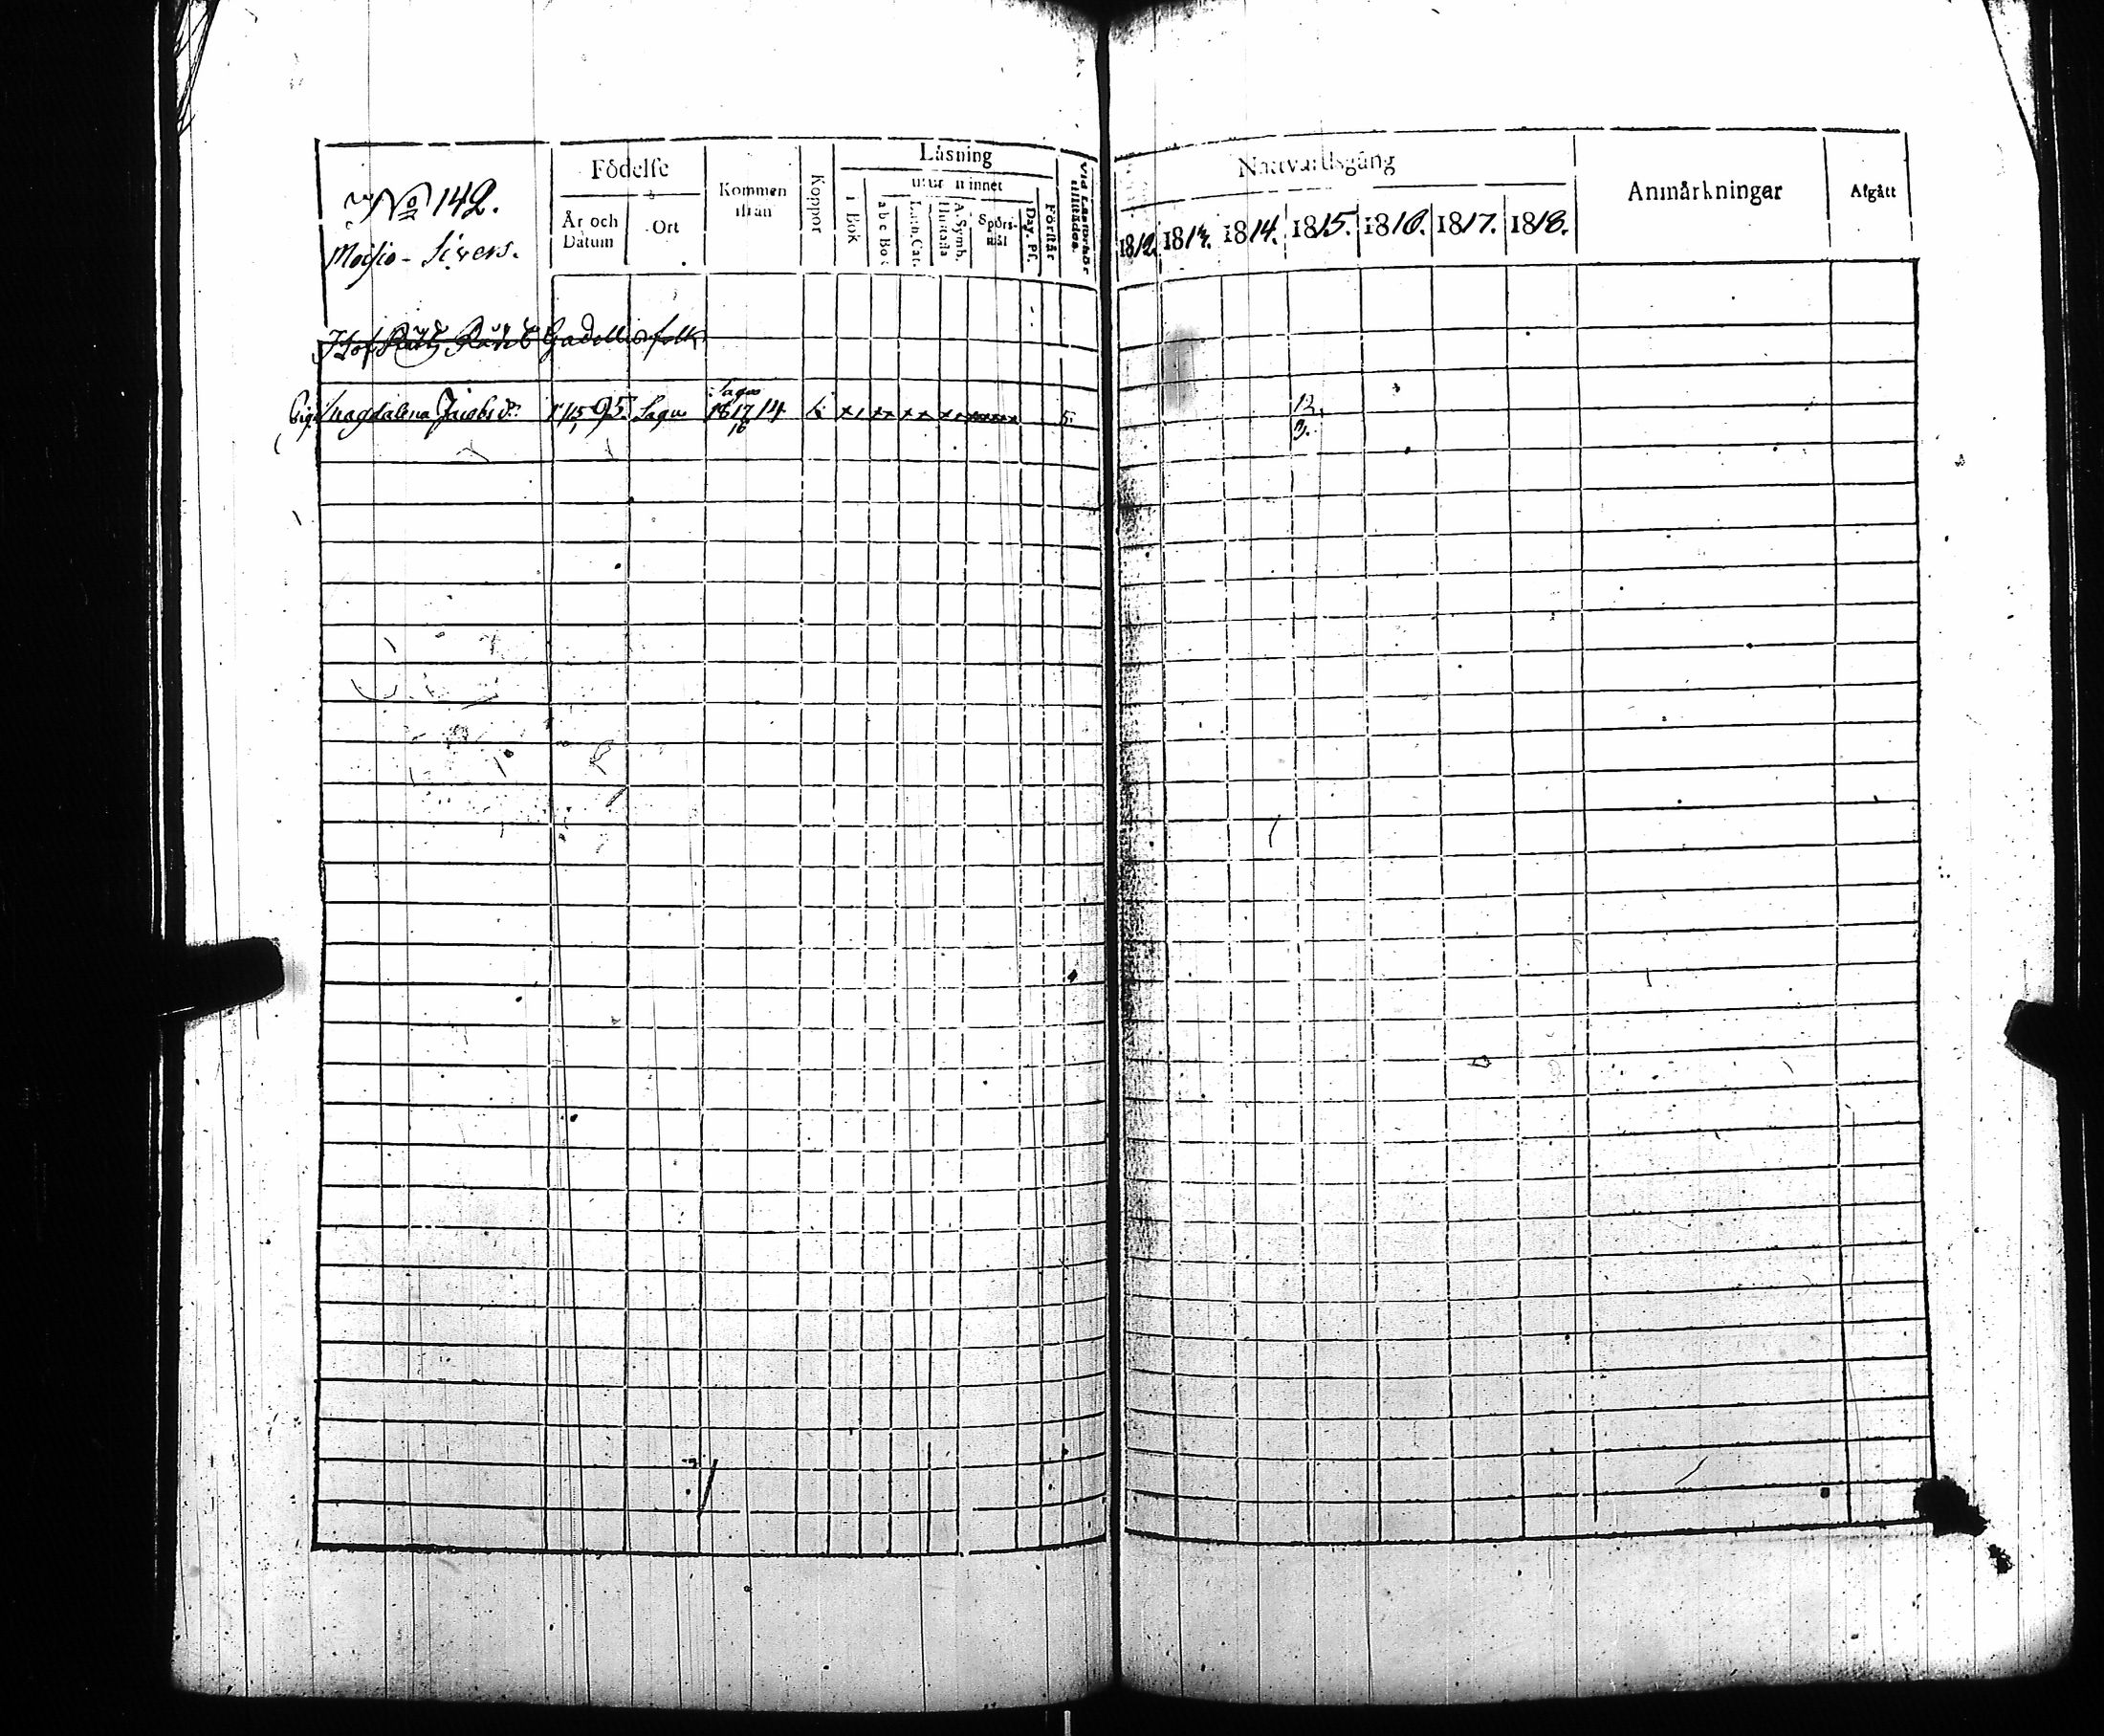 No 142.
Moisio-Sivers.
Födelse
År och Datum
Ort
Kommen ifrån
Koppor
Läsning
i Bok
utur minnet
a b c Bok
Luth. Cat.
A. Symb. Hustafla
Spörsmål
Dav. Ps.
Förstår
Vid Läseförhör tillstädes.
Nattvardsgång
1812.
1813.
1814.
1815.
1816.
1817.
1818.
Anmärkningar
Afgått
Gadellii folk
Pig. Magdalena Jacobsd:r 95. Sagu 1817 14 5. 12.
Sagu
16 9.